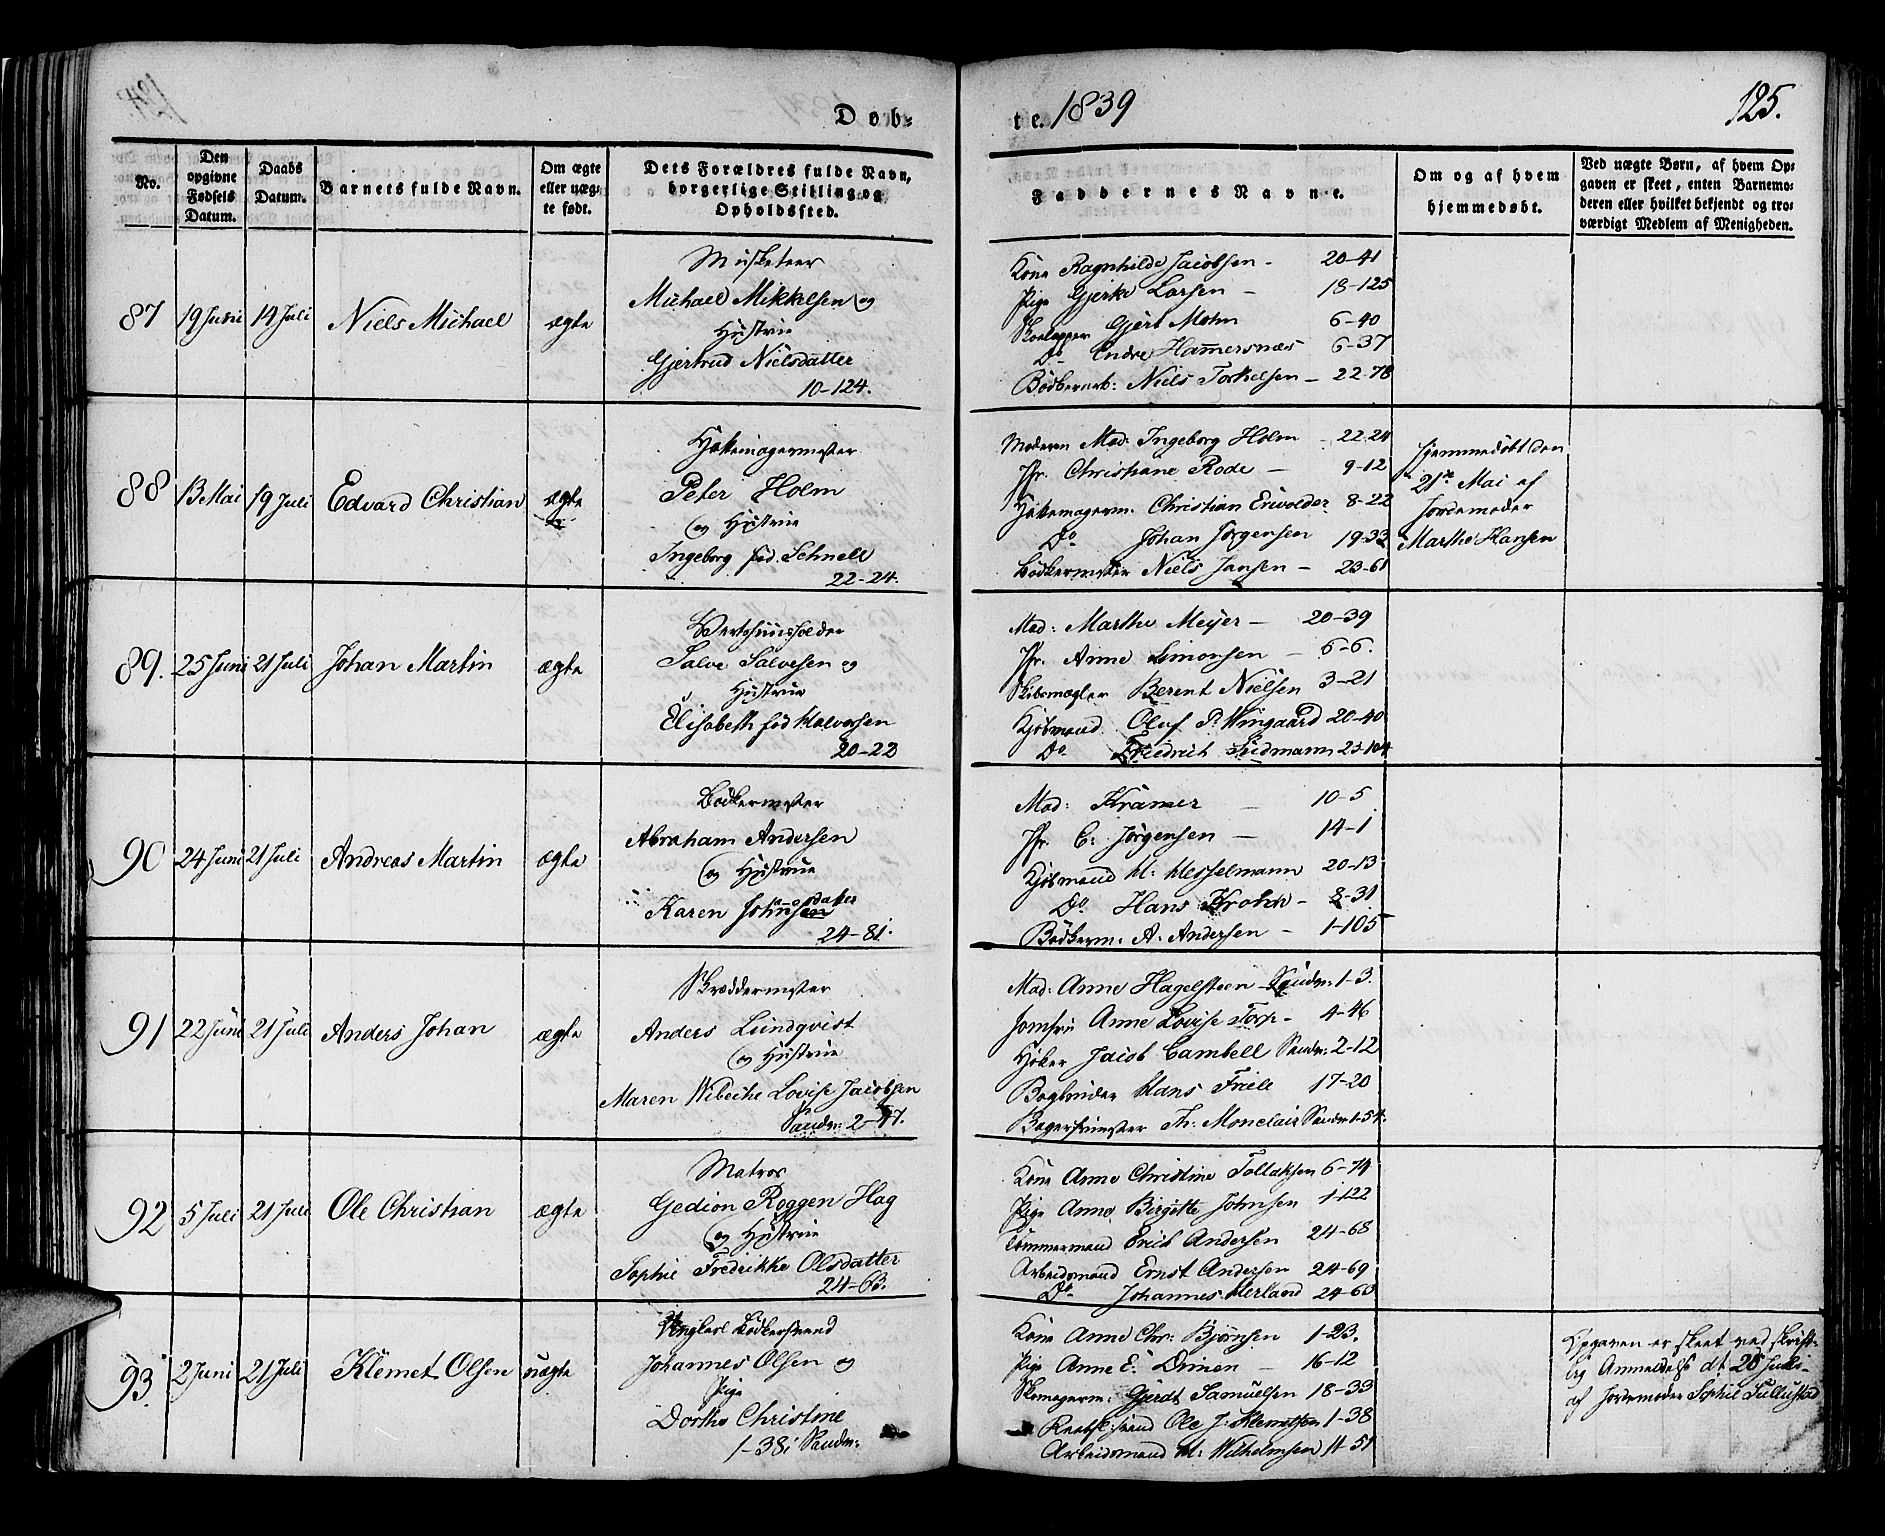 Døb-
te. 1839
125.
No.
Den opgivne Fødsels Datum.
Daabs Datum.
Barnets fulde Navn.
Om ægte eller uæg-
te født.
Dets Forældres fulde Navn,
borgerlige Stilling og
Opholdssted.
Faddernes Navne.
Om og af hvem
hjemmedøbt.
Ved uægte Børn, af hvem Op-
gaven er skeet, enten Barnemo-
deren eller hvilket bekjendt og tro-
værdigt Medlem af Menigheden.
87 19 Juni 14 Juli Niels Michael ægte
Musketeer
Michael Mikkelsen og
Hustrue
Gjertrud Nielsdatter
10-124.
Kone Ragnhilde Jacobsen - 20-41
Pige Gjerke Larsen - 18-125
Gjert Mohn 6-40
Do Endre Hammersnæs 6-37
Bødkerarb: Niels Torkelsen - 22-78
88 13 Mai 19 Juli Edvard Christian ægte
Hattemagermester
Peter Holm
og Hustrue
Ingeborg fød. Schnell
22-24.
Moderen Mad: Ingeborg Holm - 22-24
Jfr. Christiane Rode - 9-12
Hattemagerm. Christian Eriwolder 8-22
Do Johan Jørgensen 19-33
Bødkermester Niels Jansen - 23-61
Hjemmedøbt den
21de Mai af
Jordemoder
Marthe Hansen
89. 25 Juni 21 Juli Johan Martin ægte
Vertshuusholder
Salve Salvesen og
Hustrue
Elisabeth fød Halvorsen
20-22
Mad: Marthe Meyer - 20-39
Jfr. Anne Simonsen - 6-6.
Skibsmægler Berent Nielsen 3-21
Kjøbmand Oluf P. Wingaard 20-40
Do Friedrich Sudmann 23-104
90 24 Juni 21 Juli Andreas Martin ægte
Bødkermester
Abraham Andersen
og Hustrue
Karen Johnsen datter
24-81.
Mad: Krämer - 10-5
Jfr. C: Jørgensen - 14-1
Kjøbmand H: Hesselmann 20-13
Do Hans Krohn - 8-31
Bødkerm: A: Andersen - 1-105
91 22 Juni 21 Juli Anders Johan ægte
Skræddermester
Anders Lundqvist
og Hustrue
Maren Wibeche Lovise Jacobsen
Sandv: 2-47.
Mad: Anne Hagelsteen - Sandv: 1-3.
Jomfru Anne Lovise Torp - 4-46
Høker Jacob Cambell Sandv: 2-12
Bogbinder Hans Friele 17-20
Bagersvender Th: Monclair Sandv: 1-54.
92 5 Juli 21 Juli Ole Christian ægte
Matros
Gedion Roggen Hag
og Hustrue
Sophie Fredrikke Olsdatter
24-63.
Kone Anne Christine Tollaksen 6-74
Pige Anne Birgitte Johnsen 1-122
Tømmermand Erich Andersen 24-68
Arbeidsmand Ernst Andersen 24-69
Do Johannes Herland 24-63
93. 2 Juni 21 Juli Klemet Olsen uægte
Ungkarl Bødkersvend
Johannes Olsen og
Pige
Dorthe Christine
1-38 i Sandv:
Kone Anne Chr: Bjørnsen 1-23.
Pige Anne E: Dmen - 16-12
Skomagerm: Gjerdt Samuelsen 18-33
Ole J: Klemetsen 1-38
Arbeidsmand M: Wilhelmsen 11-51
Opgaven er skeet ved skrift-
lig Anmeldelse dt 28 Juli
af Jordemoder Sophie Tullustad